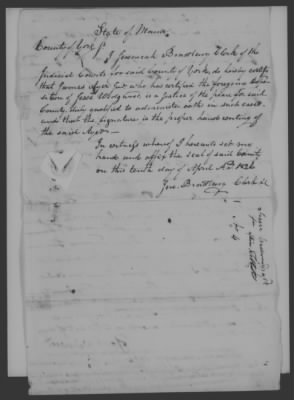 State of Maine
County of York ss
I Jeremiah Bradbury Clerk of the
Judicial Courts for said County of York, do hereby certify
that James Ayer Esqr who has certified the foregoing depo-
sition of Jesse is a Justice of the peace for said
County duly qualified to administer oaths in such cases
and that the signature is the proper hand writing of
the said Ayer.
In witness whereof I hereunto set my
hand and affix the seal of said County
on this tenth day of April A.D. 182
Jere. Bradbury Clerk &c
Jesse
for